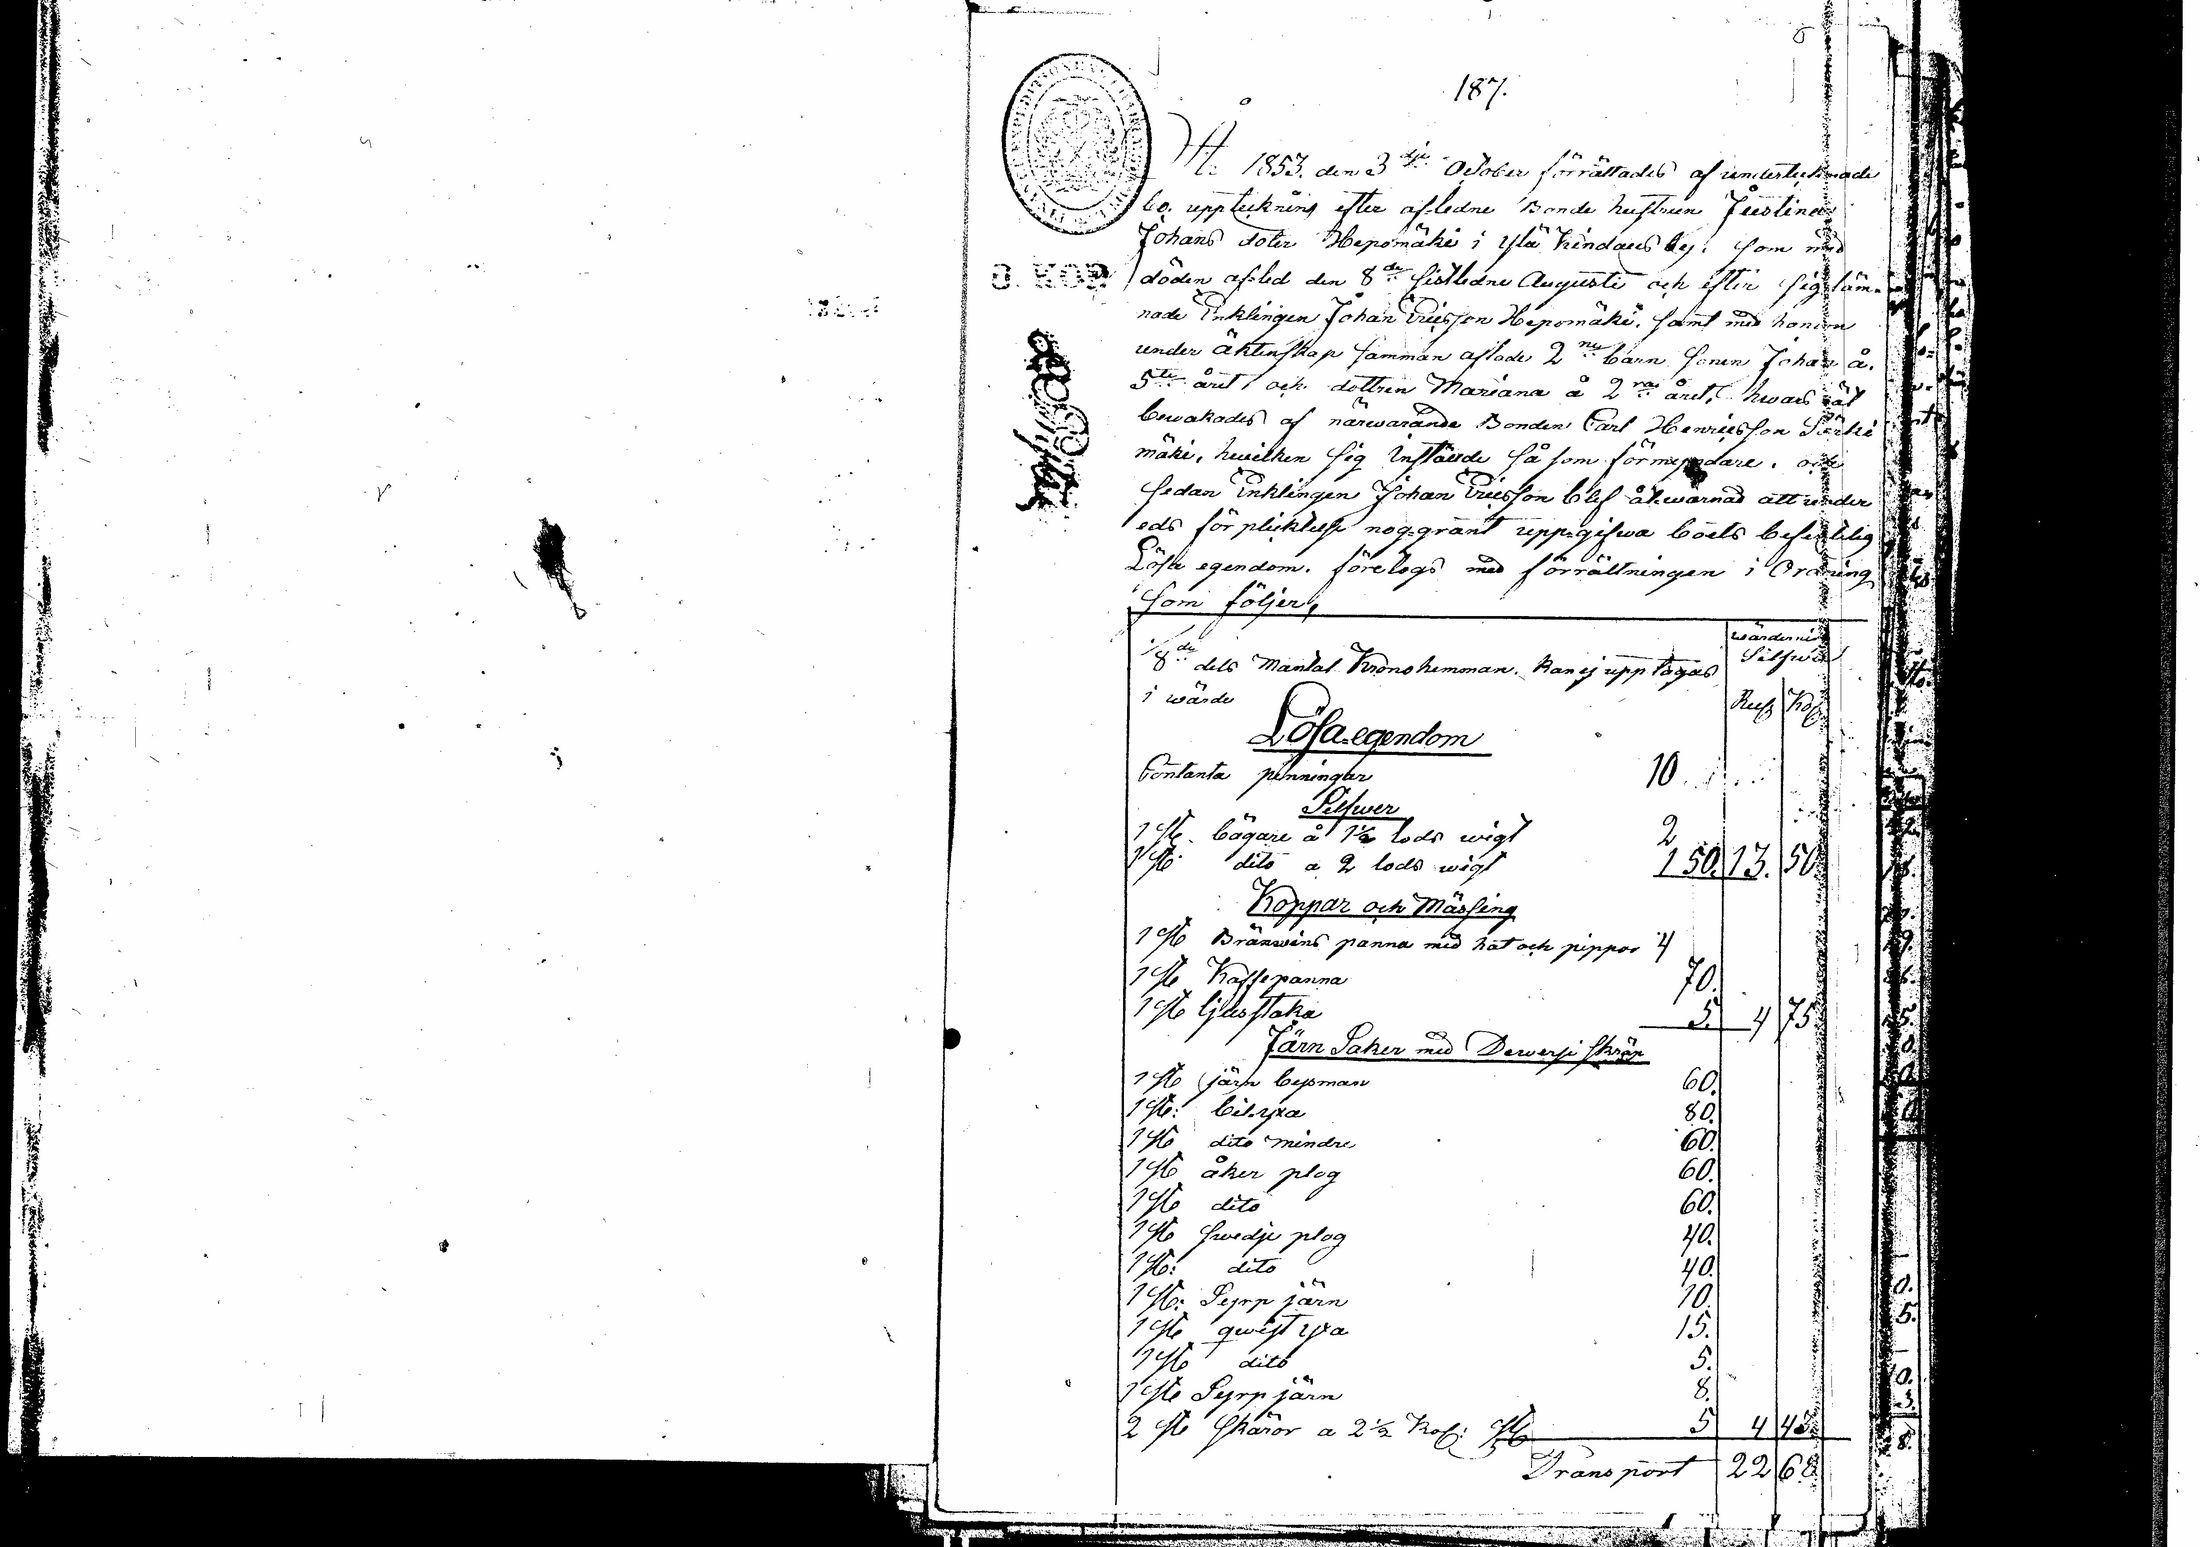 187.
År 1853. den 3dje October förrättades af undertecknade
bo. uppteckning efter afledne Bonde hustrun Justina
Johans doter Hepomäki i Ylä Kindaus by. som med
döden afled den 8de sistledne Augusti och efter sig läm-
nade Enklingen Johan Ericsson Hepomäki. samt med honom
under äktenskap samman aflade 2ne barn sonen Johan å.
5te året och dottren Mariana å 2ra året. hwars rät
bewakades af närwarande Bonden Carl Henricsson
mäki, hwilken sig instälde så som förmyndare. och
sedan Enklingen Johan Ericsson blef åtwarnad att under
eds förplicktelse nog-grant upp-gifwa boets befintelig
Lösa egendom. företogs med förrättningen i Ordning
som följer,
wärdering
Silfwer
1/8de dels Mantal Kronohemman. kan ej upptagas
i wärde
Rub Kop
Lösa-egendom
Contanta penningar 10
Silfwer
1 St. bägare å 1½ lods wigt 2
1 St. dito a 2 lods wigt 1 50. 13. 50
Koppar och Mässing
1 St Bränwins panna med hat och pippor 4
1 St Kaffepanna 70.
1 St ljusstaka 5. 4 75
Järn Saker med Dewersi skräp
1 St järn besman 60.
1 St: bil-yxa 80.
1 St dito mindre 60.
1 St åker plog 60.
1 St dito 60.
1 St swedje plog 40.
1 St: dito 40.
1 St: Syrp järn 10.
1 St qwist yxa 15.
1 St dito 5.
1 St Syrp järn 8.
2 St skäror a 2½ Kop: St 5 4 43.
Transport 22 68